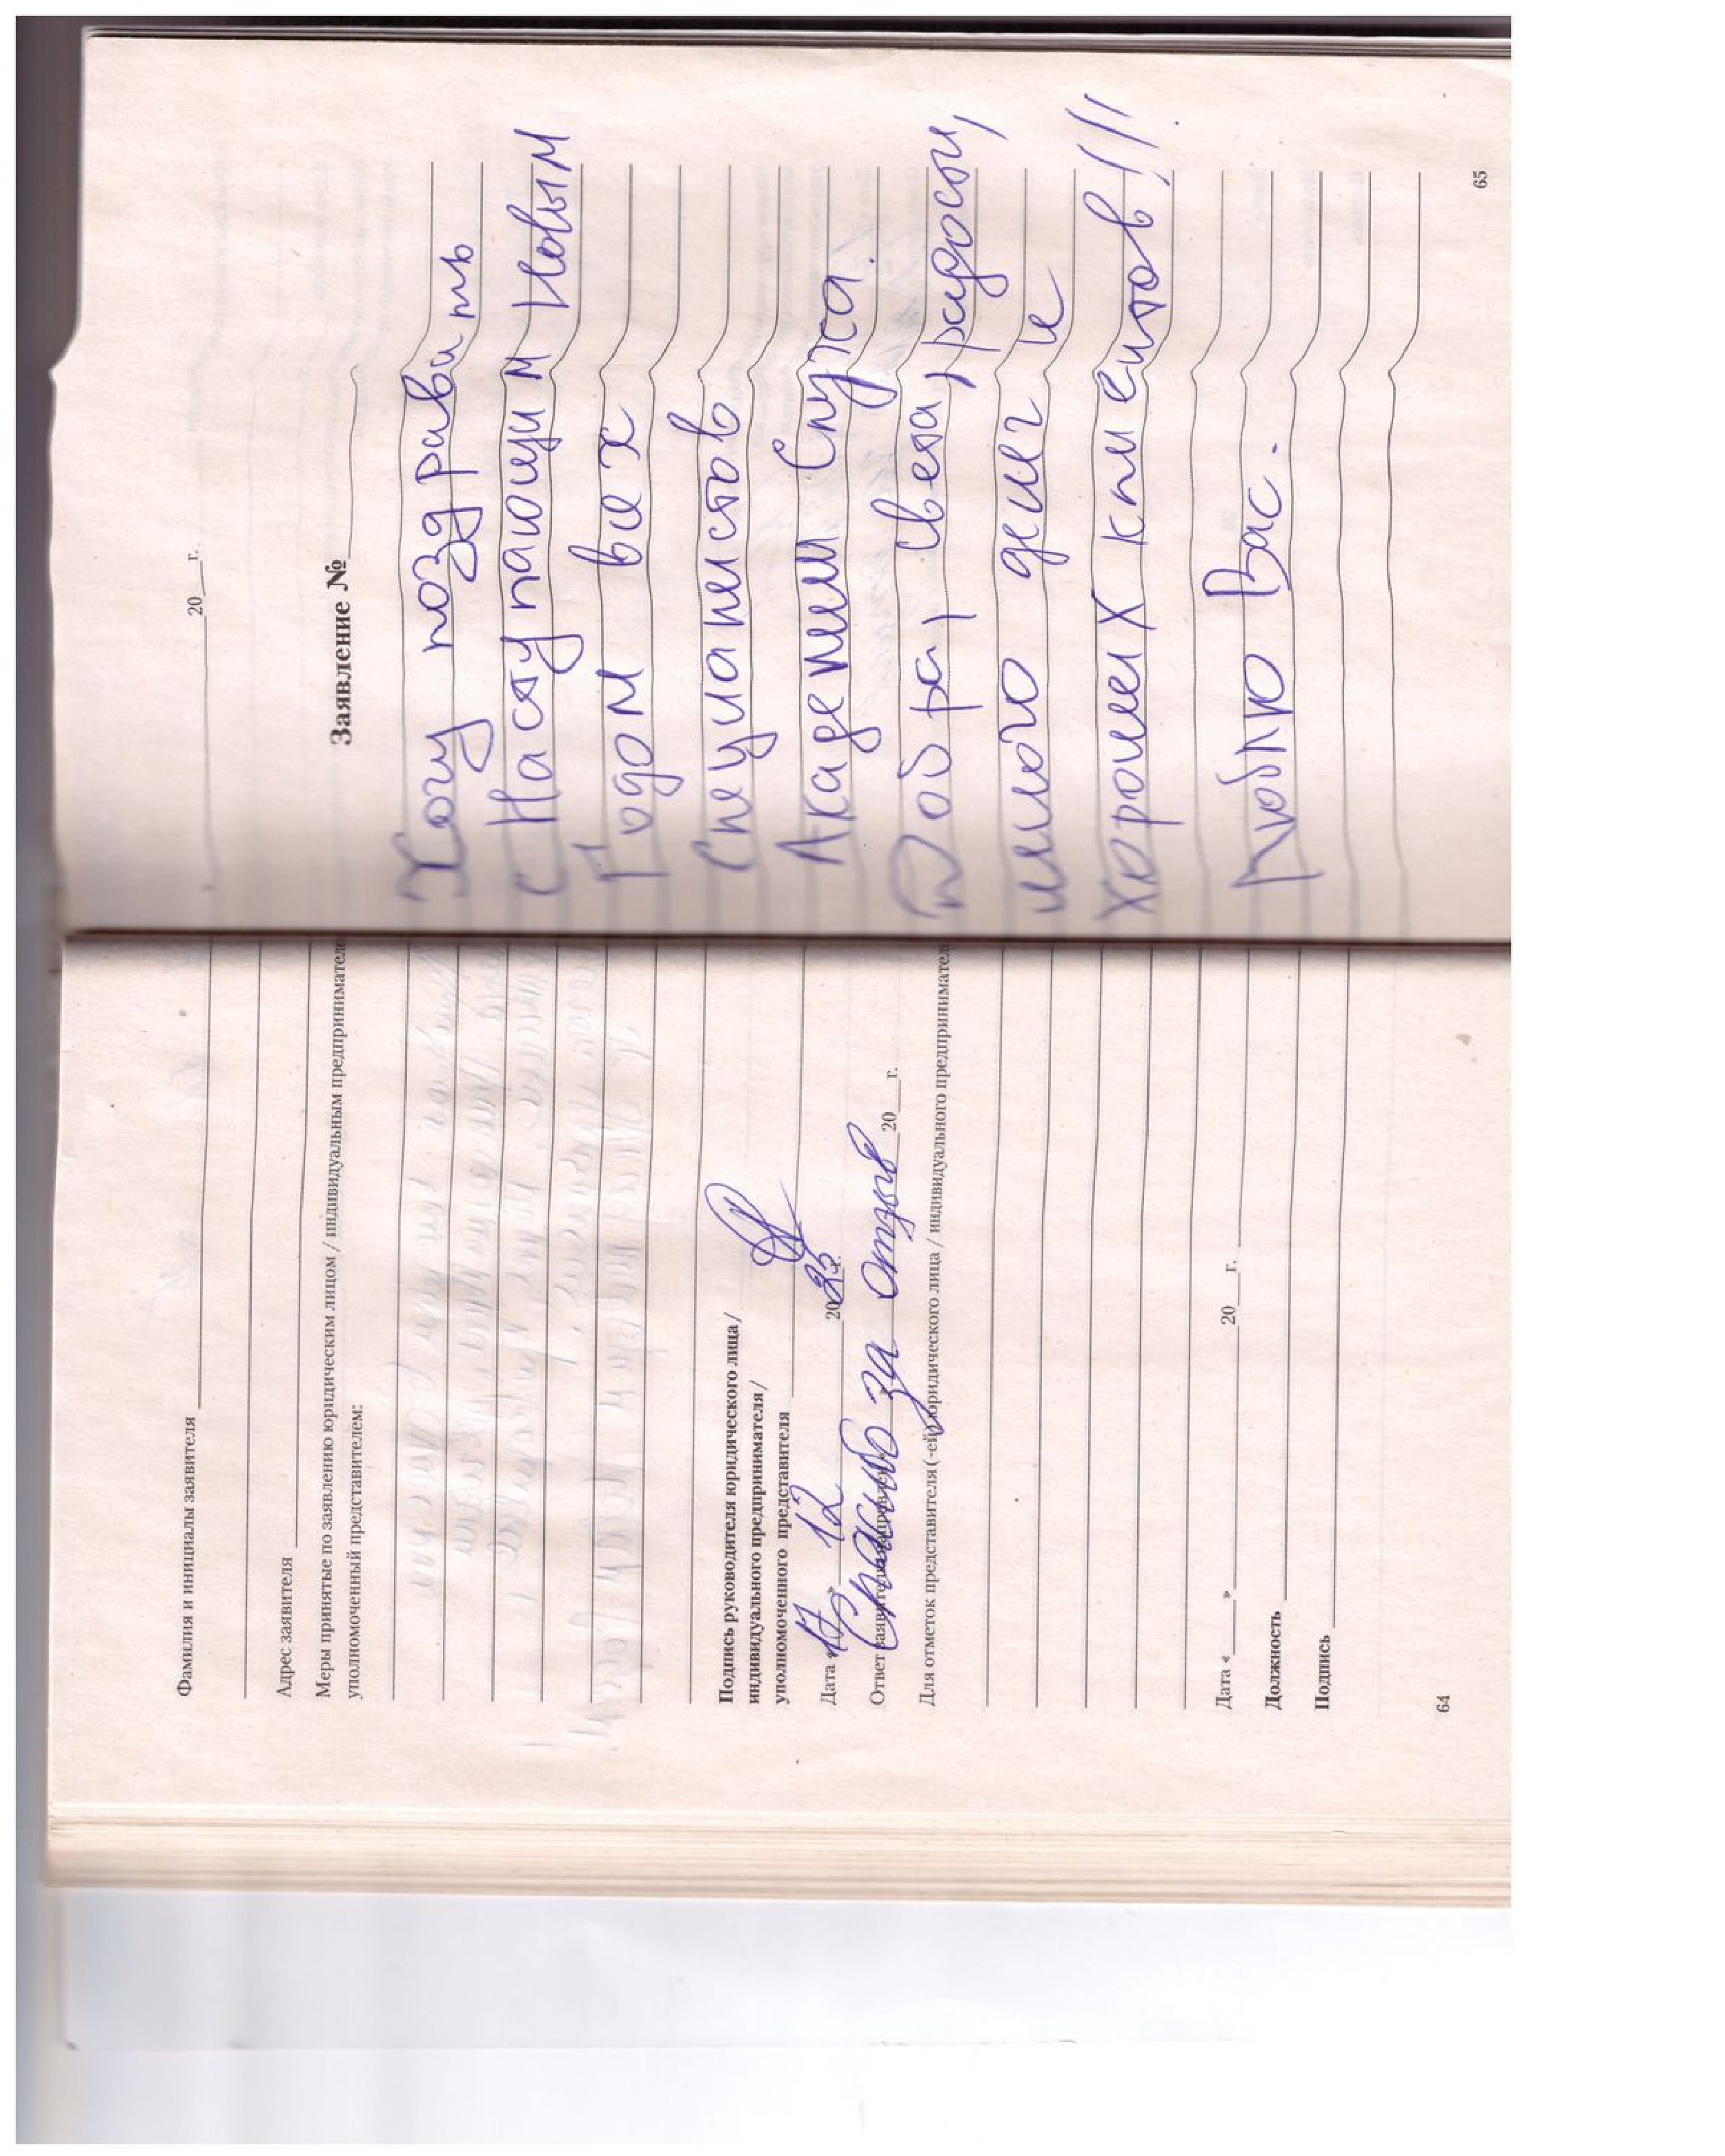 Фамилия и инициалы заявителя
Адрес заявителя
Меры принятые по заявлению юридическим лицом / индивидуальным предпринимател
уполномоченный представителем:
Подпись руководителя юридического лица /
индивидуального предпринимателя /
уполномоченного представителя
Дата «17» 12 2025г.
Ответ заявителю 20 г.
Спасибо за отзыв
Для отметок представителя (-ей) юридического лица / индивидуального предпринимател
Дата « » 20 г.
Должность
Подпись
64
20 г.
Заявление №
Хочу поздравить
с Наступающим Новым
Годом всех
Специалистов
Академии Спужа.
Добра, света, радости,
много денег и
хороших клиентов!!!
Люблю Вас.
65